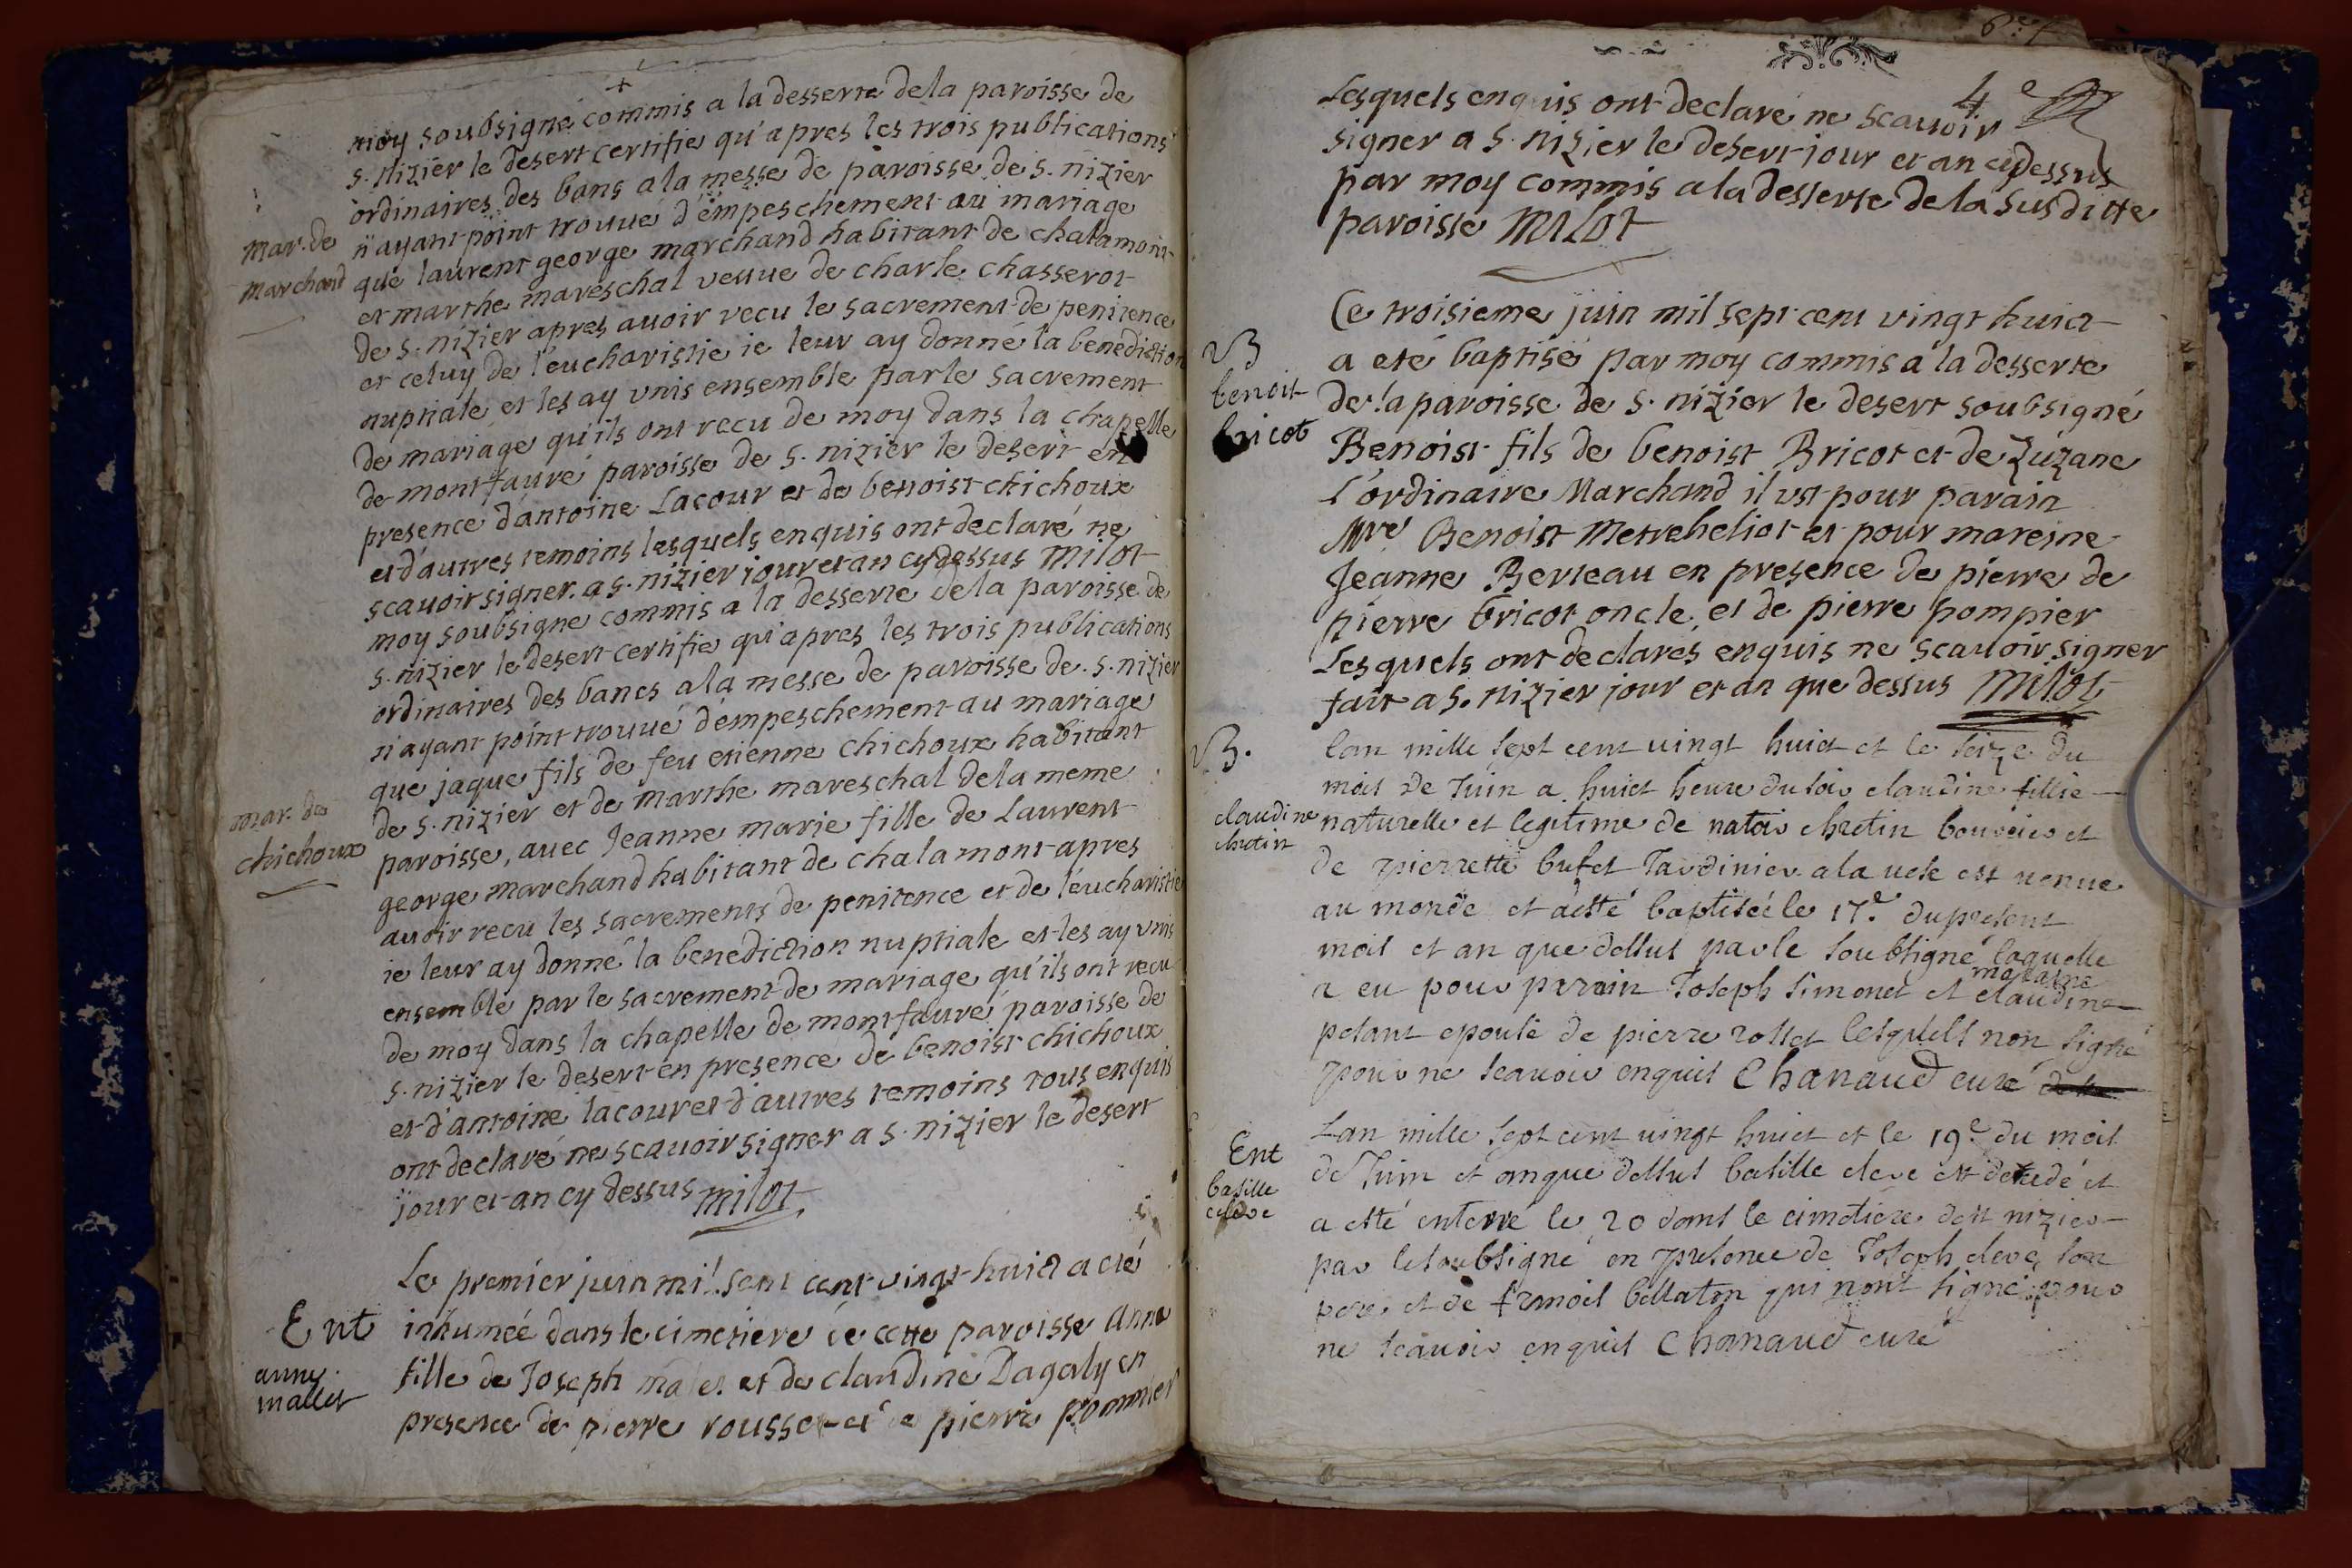 moy soubsigné commis a la desserte de la paroisse de
s. Nizier le desert certifie qu'apres les trois publications
ordinaires des bans a la messe de paroisse de s. nizier
mar. de
marchand
n'ayant point trouué d'empeschement au mariage
que laurent george marchand habitant de chalamont
et marthe mareschal veuue de charle chasserot
de s. nizier apres auoir recu le sacrement de penitence
et celuy de l'eucharistie ie leur ay donné la benediction
nuptiale et les ay vnis ensemble par le sacrement
de mariage qu'ils ont recu de moy dans la chapelle
de montfauré paroisse de s. nizier le desert en
presence d'antoine Lacour et de benoist chichoux
et d'autres temoins lesquels enquis ont declaré ne
scauoir signer. a s. nizier jour et an cy dessus Milot
moy soubsigne commis a la desserte de la paroisse de
s. nizier le desert certifie qu'apres les trois publications
ordinaires des bancs a la messe de paroisse de s. nizier
n'ayant point trouué d'empeschement au mariage
que jaque fils de feu etienne chichoux habitant
mar. de
chichoux
de s. nizier et de marthe mareschal de la meme
paroisse, auec Jeanne marie fille de Laurent
george marchand habitant de chalamont apres
auoir recu les sacrements de penitence et de l'eucharistie
ie leur ay donné la benediction nuptiale et les ay vnis
ensemble par le sacrement de mariage qu'ils ont recu
de moy dans la chapelle de montfauré paroisse de
s. nizier le desert en presence de benoist chichoux
et d'antoine lacour et d'autres temoins tous enquis
ont declaré ne scauoir signer a s. nizier le desert
jour et an cy dessus milot
Le premier juin mil sept cent vingt huict a eté
Ent
anne
mallet
inhumée dans le cimetiere de cette paroisse Anne
fille de Joseph malet et de claudine Dagaly en
presence de pierre rousset et de pierre pommier
4e
Lesquels enquis ont declaré ne scauoir
signer a s. nizier le desert jour et an cy dessus
par moy commis a la desserte de la susditte
paroisse Milot
Ce troisieme juin mil sept cent vingt huict
B
benoit
bricot
a eté baptisé par moy commis a la desserte
de la paroisse de s. nizier le desert soubsigné
Benoist fils de benoist Bricot et de Zuzane
l'ordinaire Marchand il ust pour parain
Mre Benoist Metrebeliot et pour mareine
Jeanne Berteau en presence de pierre de
pierre bricot oncle, et de pierre pompier
Lesquels ont declarés enquis ne scauoir signer
fait a s. nizier jour et an que dessus Milot
B.
claudine
chretin
lan mille sept cent uingt huict et le seize du
mois de Juin a huict heure du soir claudine fillie
naturelle et legitime de chretin bouuier et
de pierrette bufet Jardinier est uenue
au monde et a esté baptiseé le 17e du present
mois et an que dessus par le soubsigné laquelle
a eu pour parain Joseph simonet et maraine claudine
pesant epouse de pierre rosset lesquels non signé
pour ne scauoir enquis Chanaud curé
Ent
basille
cleve
Lan mille sept cent uingt huict et le 19e du mois
de Juin et an que dessus basille cleve est decedé et
a esté enterré le 20 dans le cimetiere de st nizier
par le soubsigné en presence de Joseph cleve son
pere et de bellaton qui nont signé pour
ne scauoir enquis Chanaud curé